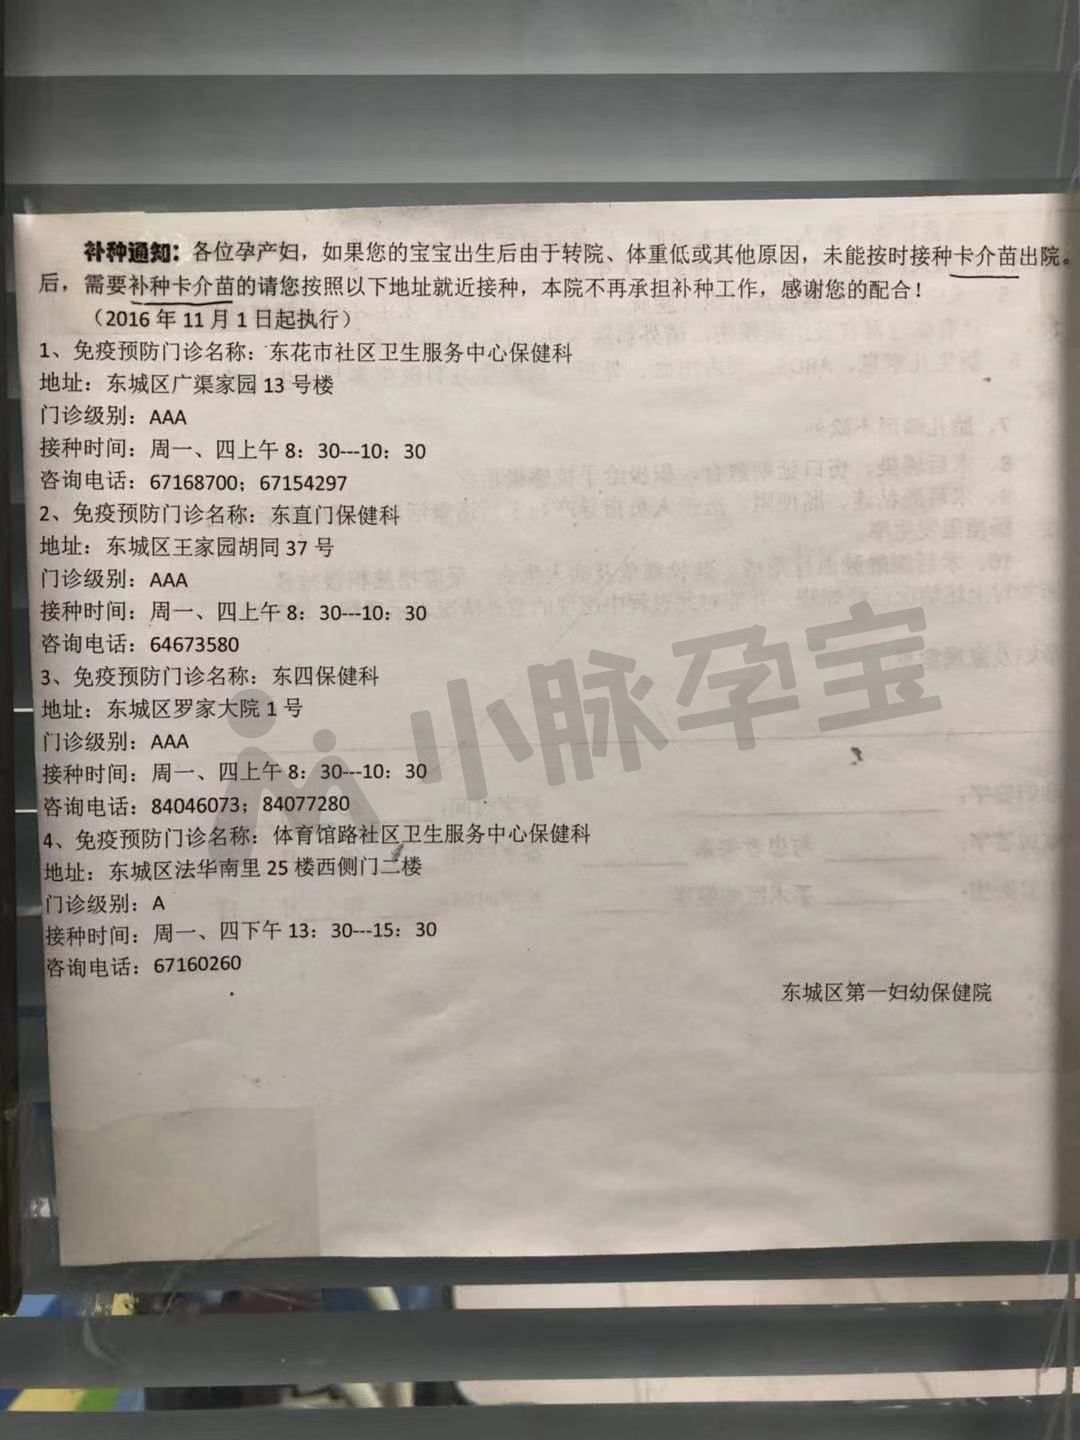 补种通知：各位孕产妇，如果您的宝宝出生后由于转院、体重低或其他原因，未能按时接种卡介苗出院。
后，需要补种卡介苗的请您按照以下地址就近接种，本院不再承担补种工作，感谢您的配合！
（2016 年 11 月 1 日起执行）
1、免疫预防门诊名称：东花市社区卫生服务中心保健科
地址：东城区广渠家园 13 号楼
门诊级别：AAA
接种时间：周一、四上午 8：30---10：30
咨询电话：67168700；67154297
2、免疫预防门诊名称：东直门保健科
地址：东城区王家园胡同 37 号
门诊级别：AAA
接种时间：周一、四上午 8：30---10：30
咨询电话：64673580
3、免疫预防门诊名称：东四保健科
地址：东城区罗家大院 1 号
门诊级别：AAA
接种时间：周一、四上午 8：30---10：30
咨询电话：84046073；84077280
4、免疫预防门诊名称：体育馆路社区卫生服务中心保健科
地址：东城区法华南里 25 楼西侧门二楼
门诊级别：A
接种时间：周一、四下午 13：30---15：30
咨询电话：67160260
东城区第一妇幼保健院
小脉孕宝